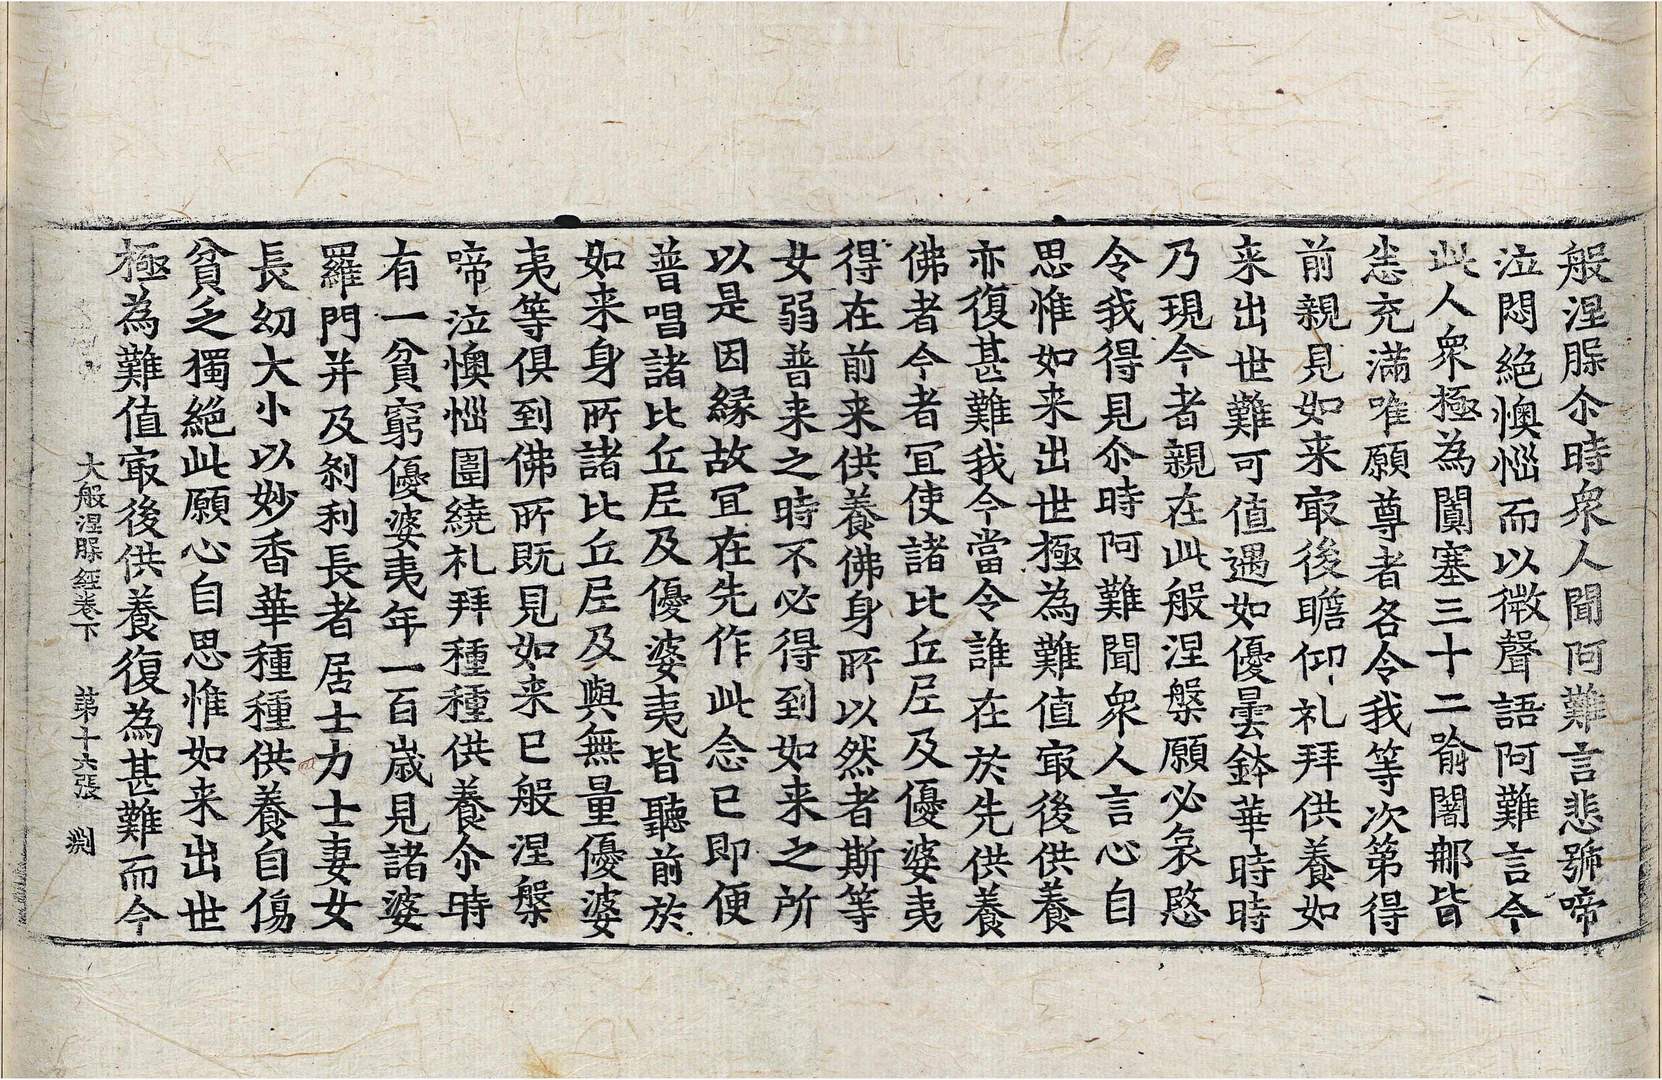 般涅脲尒時衆人聞阿難言悲號啼
泣悶絕懊惱而以微聲語阿難言今
此人衆極為闐塞三十二踰闍那皆
悉充滿唯願尊者各令我等次第得
前親見如来㝡後瞻仰礼拜供養如
来出世難可值遇如優曇鉢華時時
乃現今者親在此般涅槃願必哀愍
令我得見尒時阿難聞衆人言心自
思惟如来出世極為難值㝡後供養
亦復甚難我今當令誰在於先供養
佛者今者冝使諸比丘尼及優婆夷
得在前来供養佛身所以然者斯等
女弱普来之時不必得到如来之所
以是因緣故冝在先作此念已即便
普唱諸比丘尼及優婆夷皆聽前於
如来身所諸比丘尼及與無量優婆
夷等俱到佛所既見如来已般涅槃
啼泣懊惱圍繞礼拜種種供養尒時
有一貧窮優婆夷年一百歲見諸婆
羅門并及剎利長者居士力士妻女
長幼大小以妙香華種種供養自傷
貧乏獨絕此願心自思惟如来出世
極為難值㝡後供養復為甚難而今
大般涅脲經卷下 第十六張 㓨